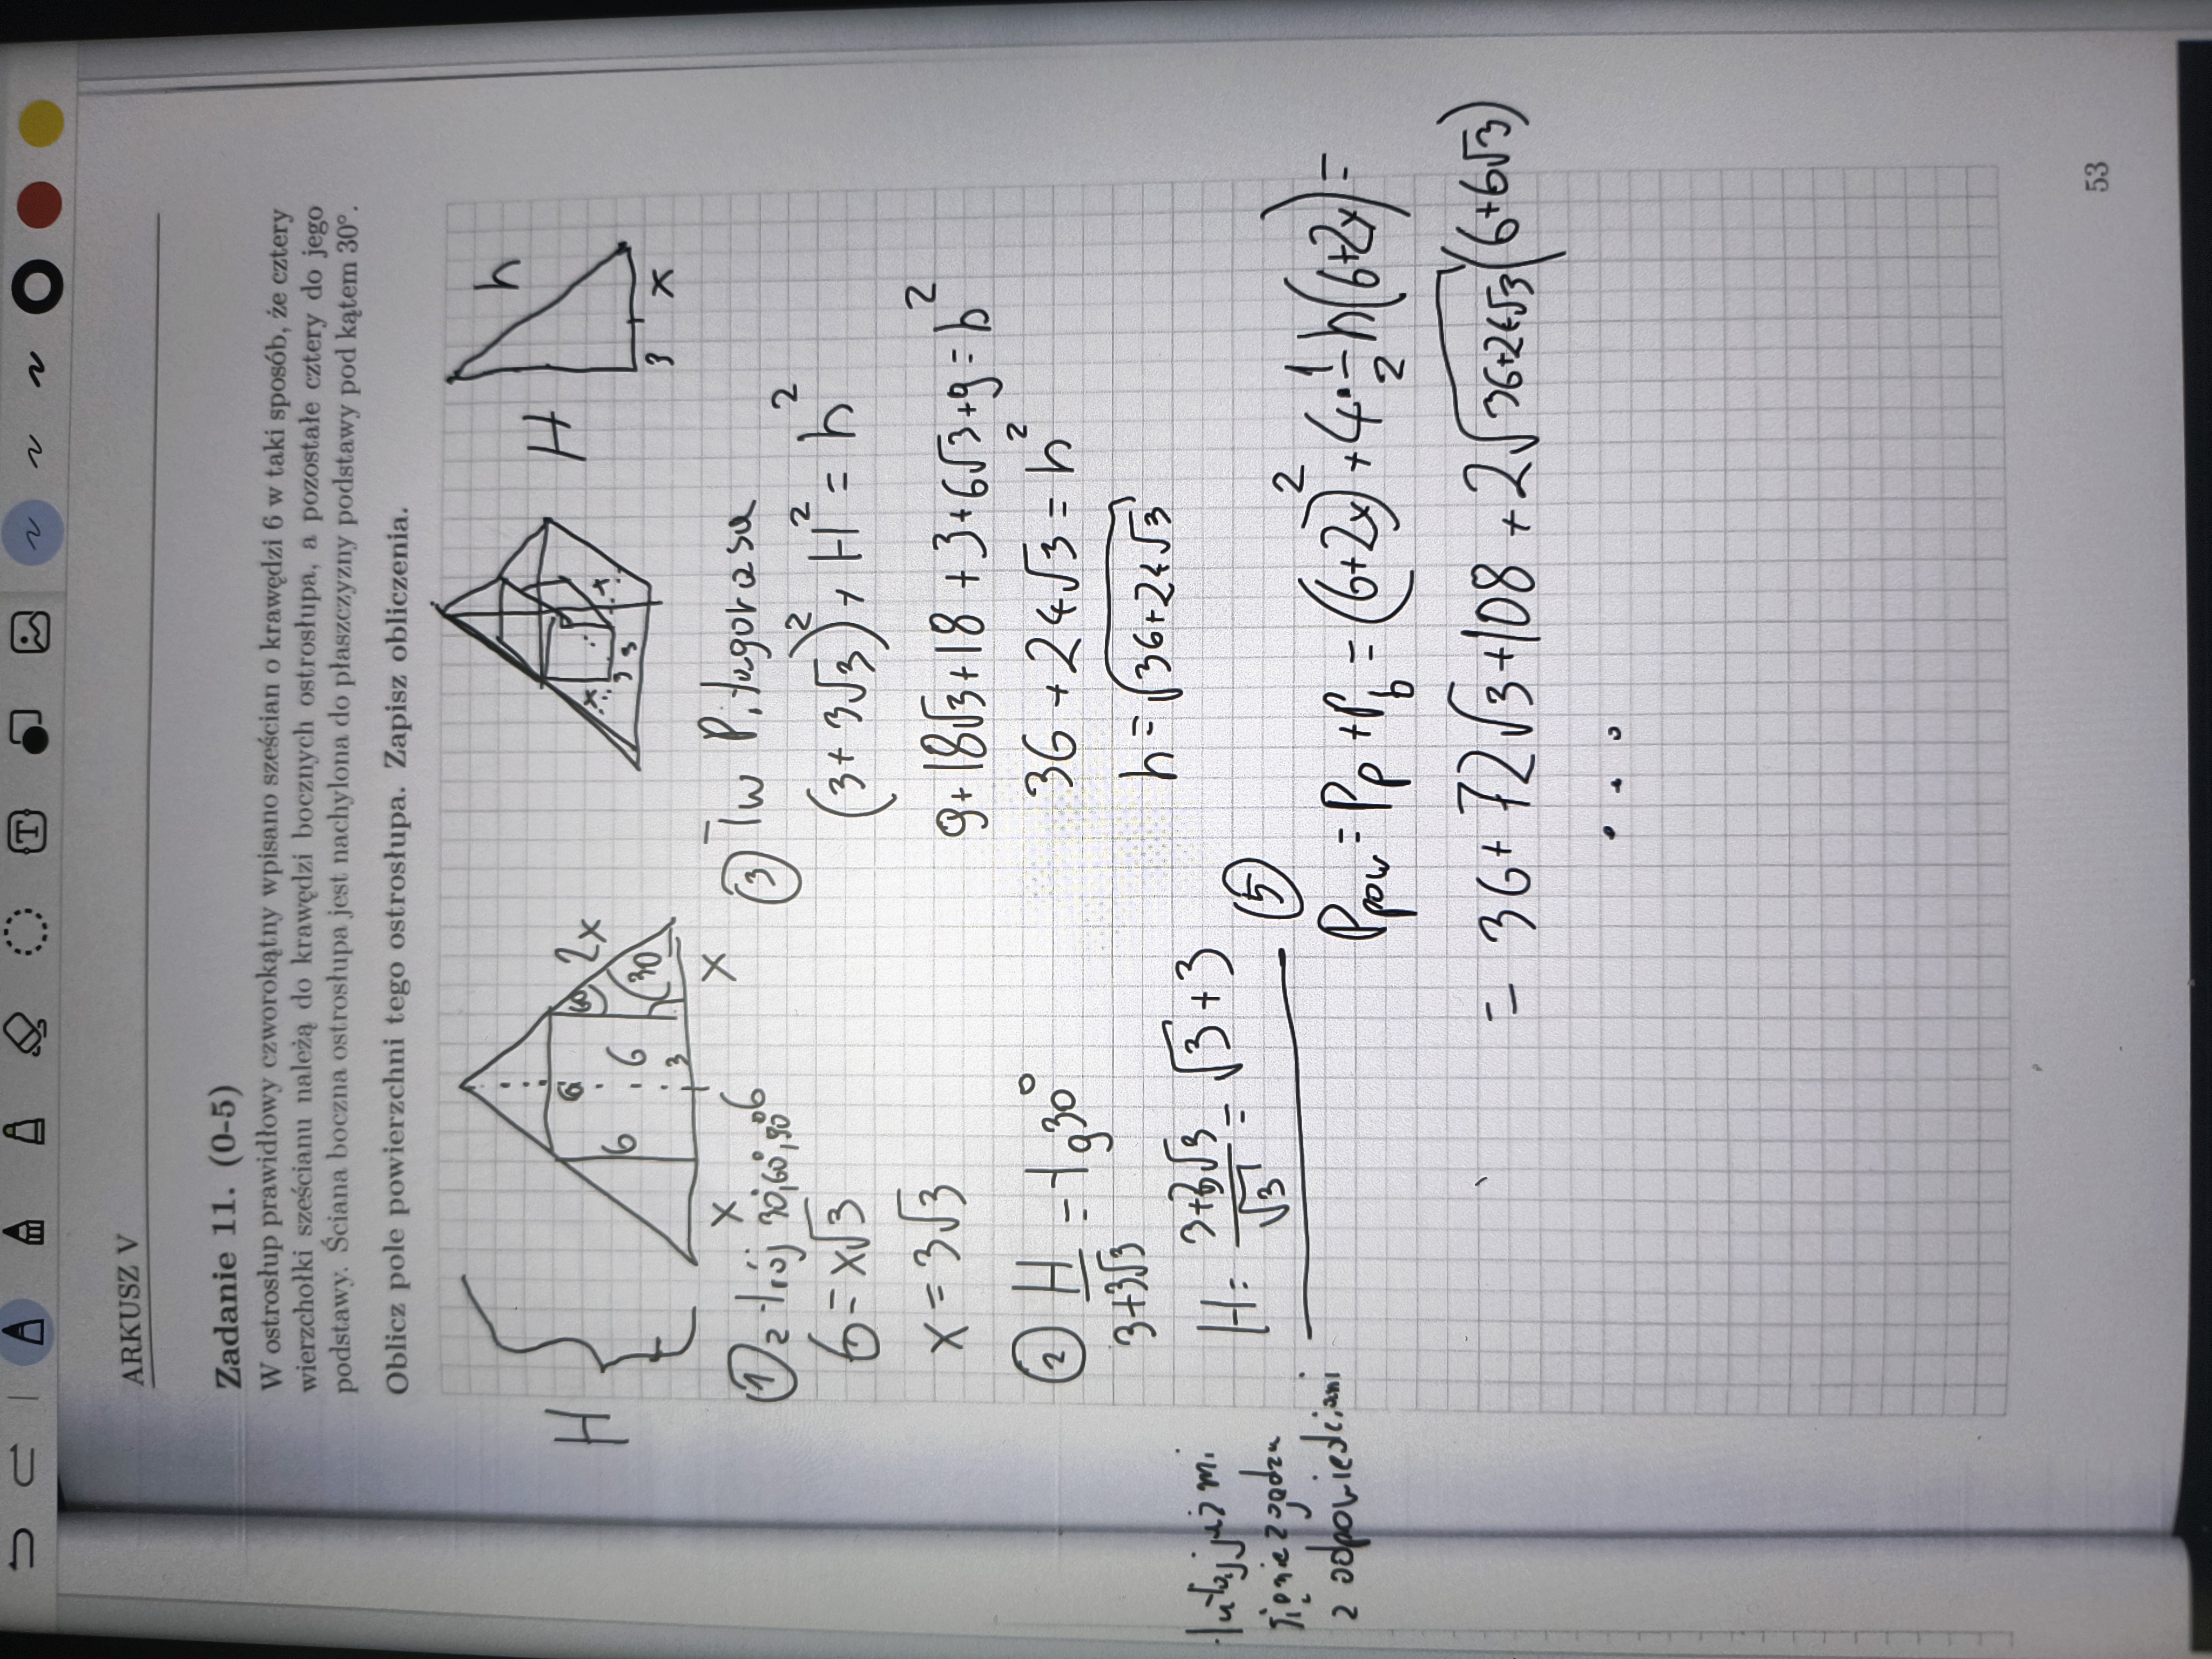 ARKUSZ V
Zadanie 11. (0-5)
W ostrosłup prawidłowy czworokątny wpisano sześcian o krawędzi 6 w taki sposób, że cztery
wierzchołki sześcianu należą do krawędzi bocznych ostrosłupa, a pozostałe cztery do jego
podstawy. Ściana boczna ostrosłupa jest nachylona do płaszczyzny podstawy pod kątem 30°.
Oblicz pole powierzchni tego ostrosłupa. Zapisz obliczenia.
H
6
6
6
3
60
30
2x
x
x
x
x
3
3
H
h
3
x
① z trój 30,60,90°
6
6=x√3
x = 3√3
② H/(3+3√3) = tg30°
H = (3+3√3)/√3 = √3+3
tutaj już mi
się nie zgadza
z odpowiedziami
③ Tw Pitagorasa
(3+3√3)² + H² = h²
9+18√3+18+3+6√3+9=h²
36+24√3=h²
h=√(36+24√3)
⑤
Ppow=Pp+Pb=(6+2x)²+4·1/2h(6+2x)=
= 36+72√3+108+2√(36+24√3)(6+6√3)
...
53